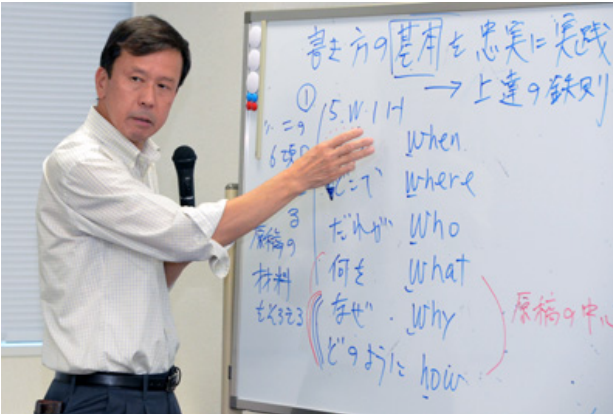 書き方の基本を忠実に実践
→ 上達の鉄則
① 5.W.1H
この
6項
原稿の
材料
をそろえる
when
どこで where
だれが Who
何を What
なぜ. Why
どのように how
原稿の中